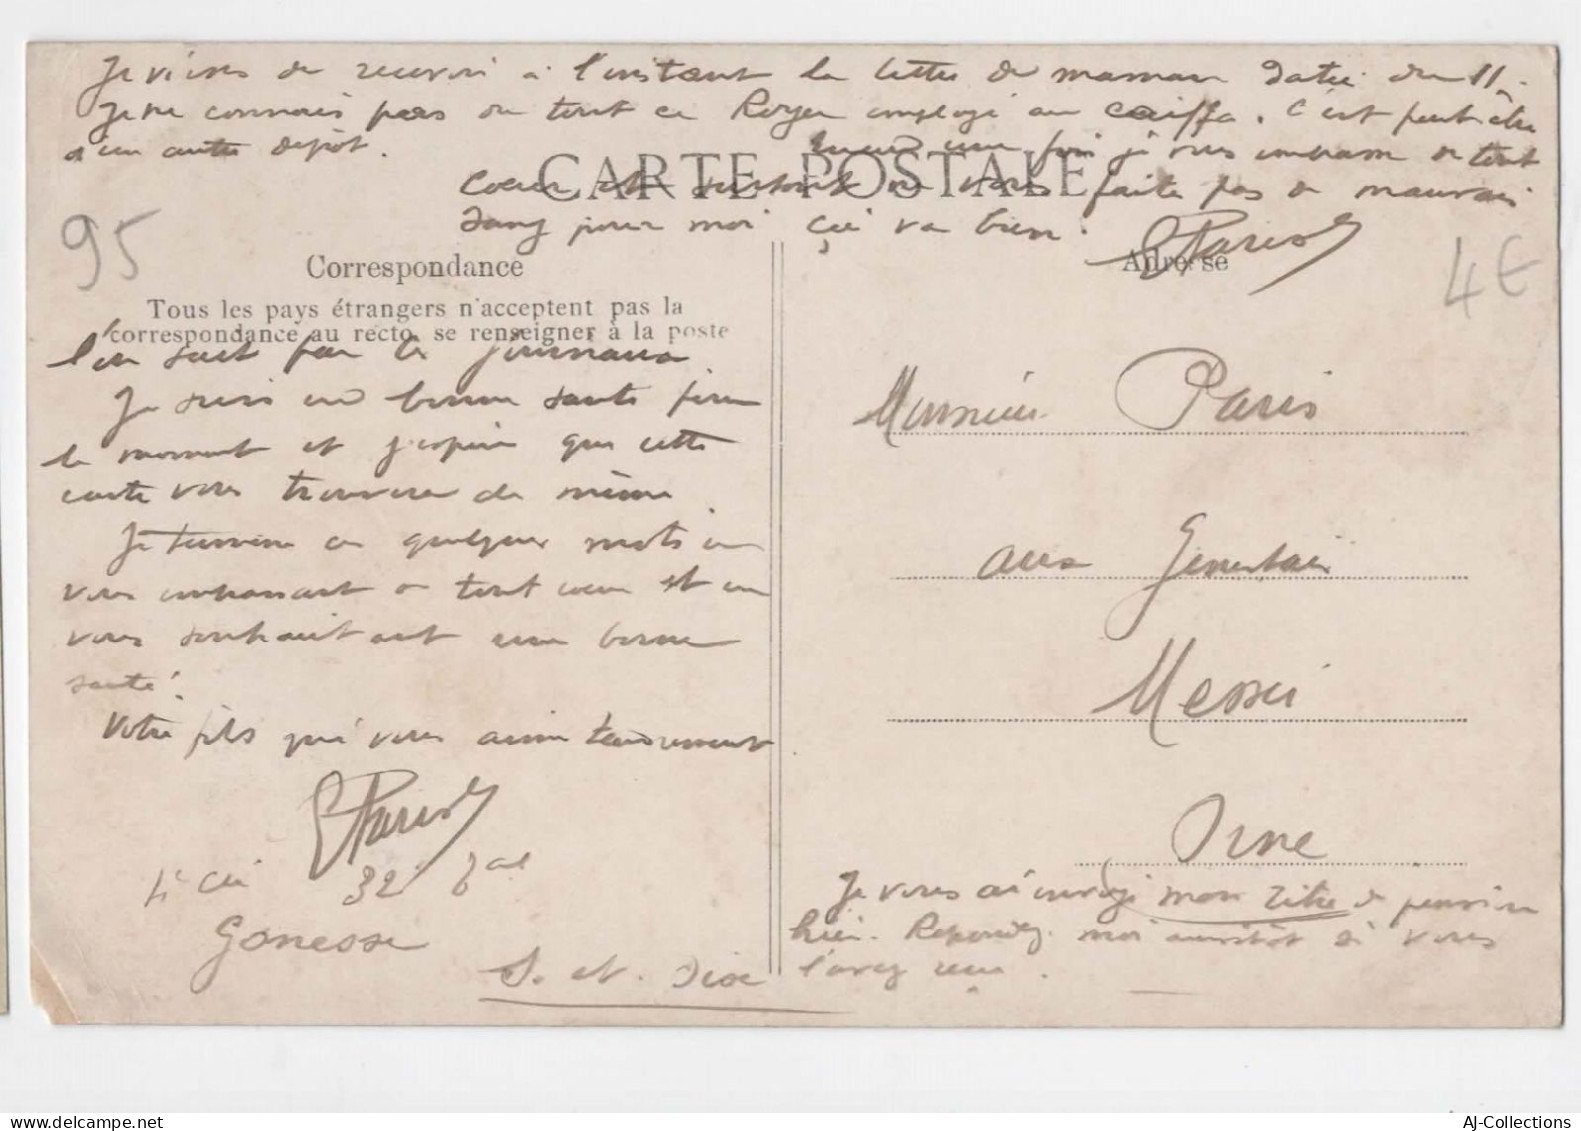 Je viens de recevoir à l'instant la lettre de maman datée du 11.
Je ne connais pas du tout ce Royer employé au Caïffa. C'est peut-être
d'un autre dépôt.
une fois je vous embrasse de tout
CARTE POSTALE
coeur et surtout ne vous faite pas de mauvais
sang pour moi ça va bien.
Paris
95
4€
Correspondance
Adresse
Tous les pays étrangers n'acceptent pas la
correspondance au recto, se renseigner à la poste
l'on sait par les journaux
Je suis en bonne santé pour
le moment et j'espère que cette
carte vous trouvera de même
Je termine en quelques mots en
vous embrassant de tout coeur et en
vous souhaitant une bonne
santé.
Votre fils qui vous aime tendrement
Paris
Cie 32e
Gonesse
S. et Oise
Monsieur Paris
aux Genestais
Messei
Orne
Je vous ai envoyé mon titre de pension
hier. Repondez moi aussitôt si vous
l'avez reçu.
AJ-Collections